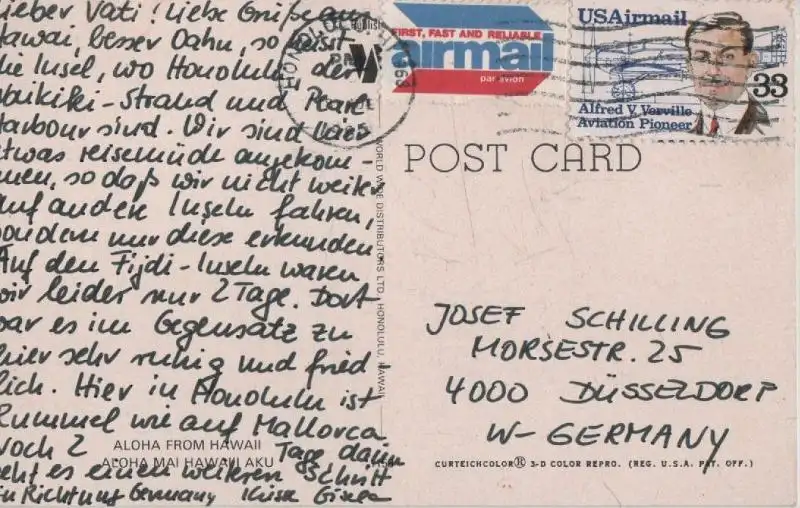 ieber Vati! Liebe Grüße aus
Hawai, besser Oahu, so heisst
die Insel, wo Honolulu der
Waikiki-Strand und Pearl
Harbour sind. Wir sind hier
etwas reisemüde angekom-
men, so daß wir nicht weiter
auf andere Inseln fahren,
sondern nur diese erkunden
Auf den Fijdi-Inseln waren
wir leider nur 2 Tage. Dort
war es im Gegensatz zu
hier sehr ruhig und fried-
lich. Hier in Honolulu ist
Rummel wie auf Mallorca
Noch 2 Tage dann
geht es einen weiteren Schritt
in Richtung Germany Kuss Gisela
ALOHA FROM HAWAII
ALOHA MAI HAWAII AKU
WORLD WIDE DISTRIBUTORS LTD., HONOLULU, HAWAII
HONOLULU
968
FIRST, FAST AND RELIABLE
airmail
par avion
USAirmail
33
Alfred V. Verville
Aviation Pioneer
POST CARD
JOSEF SCHILLING
MORSESTR. 25
4000 DÜSSELDORF
W-GERMANY
CURTEICHCOLOR® 3-D COLOR REPRO. (REG. U.S.A. PAT. OFF.)